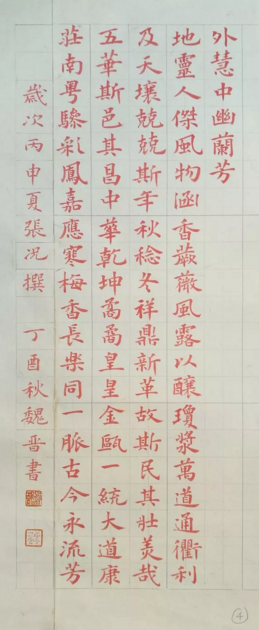 外慧中幽蘭芳
地靈人傑風物涵香蕨薇風露以釀瓊漿萬道通衢利
及天壤兢兢斯年秋稔冬祥鼎新革故斯民其壯美哉
五華斯邑其昌中華乾坤矞矞皇皇金甌一統大道康
莊南粵驂彩鳳嘉應寒梅香長樂同一脈古今永流芳
歲次丙申夏張況撰 丁酉秋魏晋書
④